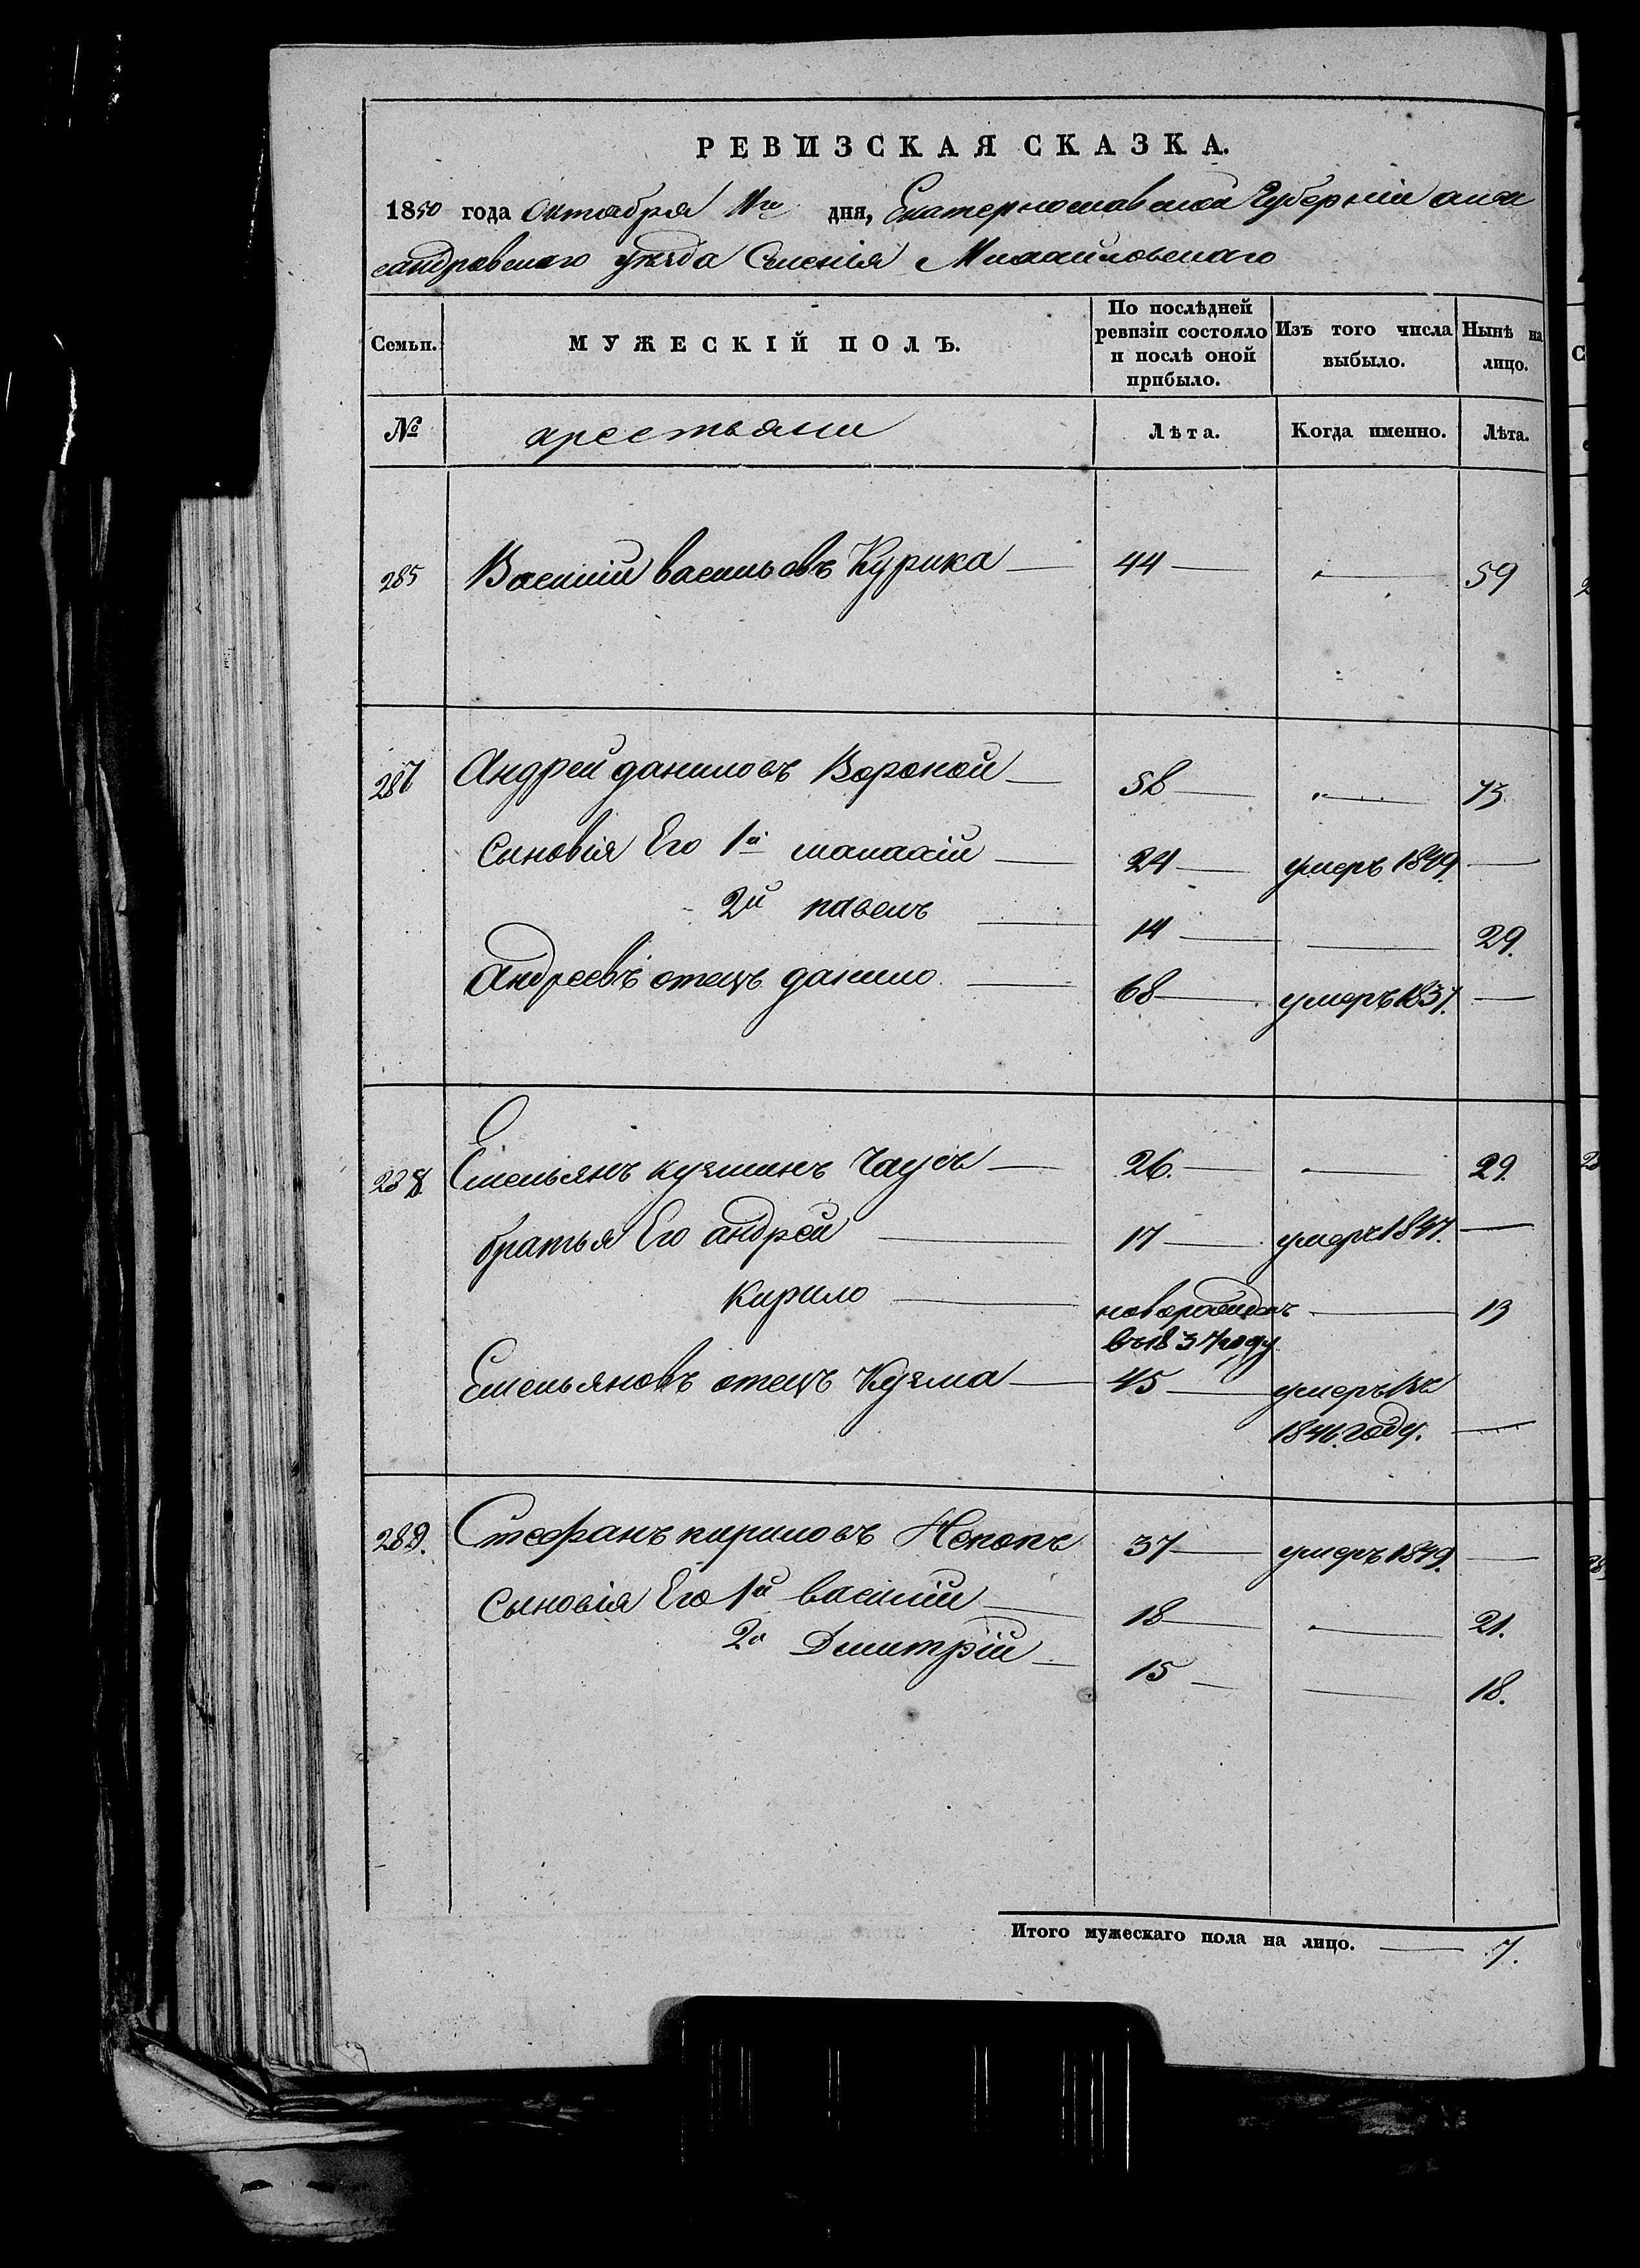 РЕВИЗСКАЯ СКАЗКА.
1850 года Октября 11го дня, Екатеринославской Губерніи Алек
сандровскаго уѣзда Селенія Михайловскаго
Семьи. МУЖЕСКІЙ ПОЛЪ. По послѣдней ревизіи состояло и послѣ оной прибыло. Изъ того числа выбыло. Нынѣ на лицо.
№ крестьяни Лѣта. Когда именно. Лѣта.
285 Василій васильовъ Курика — 44 — — 59
287 Андрей даниловъ Вороной — 58 — — 73
Сыновія Его 1й малахій — 24 — умеръ 1849 —
2й павелъ — 14 — — 29.
Андреевъ отецъ данило — 68 — умеръ 1837. —
288. Емельянъ кузминъ Чаусъ — 26. — — 29.
братья Его андрей — 17 — умеръ 1847. —
Кирило — новорожден — 13
въ 1837 году
Емельяновъ отецъ Кузма — 45 — умеръ въ
1846. году. —
289. Стефанъ кириловъ Непопъ 37 — умеръ 1849. —
Сыновія Его 1й василій — 18 — — 21.
2й Дмитрій — 15 — — 18.
Итого мужескаго пола на лицо. — 7.